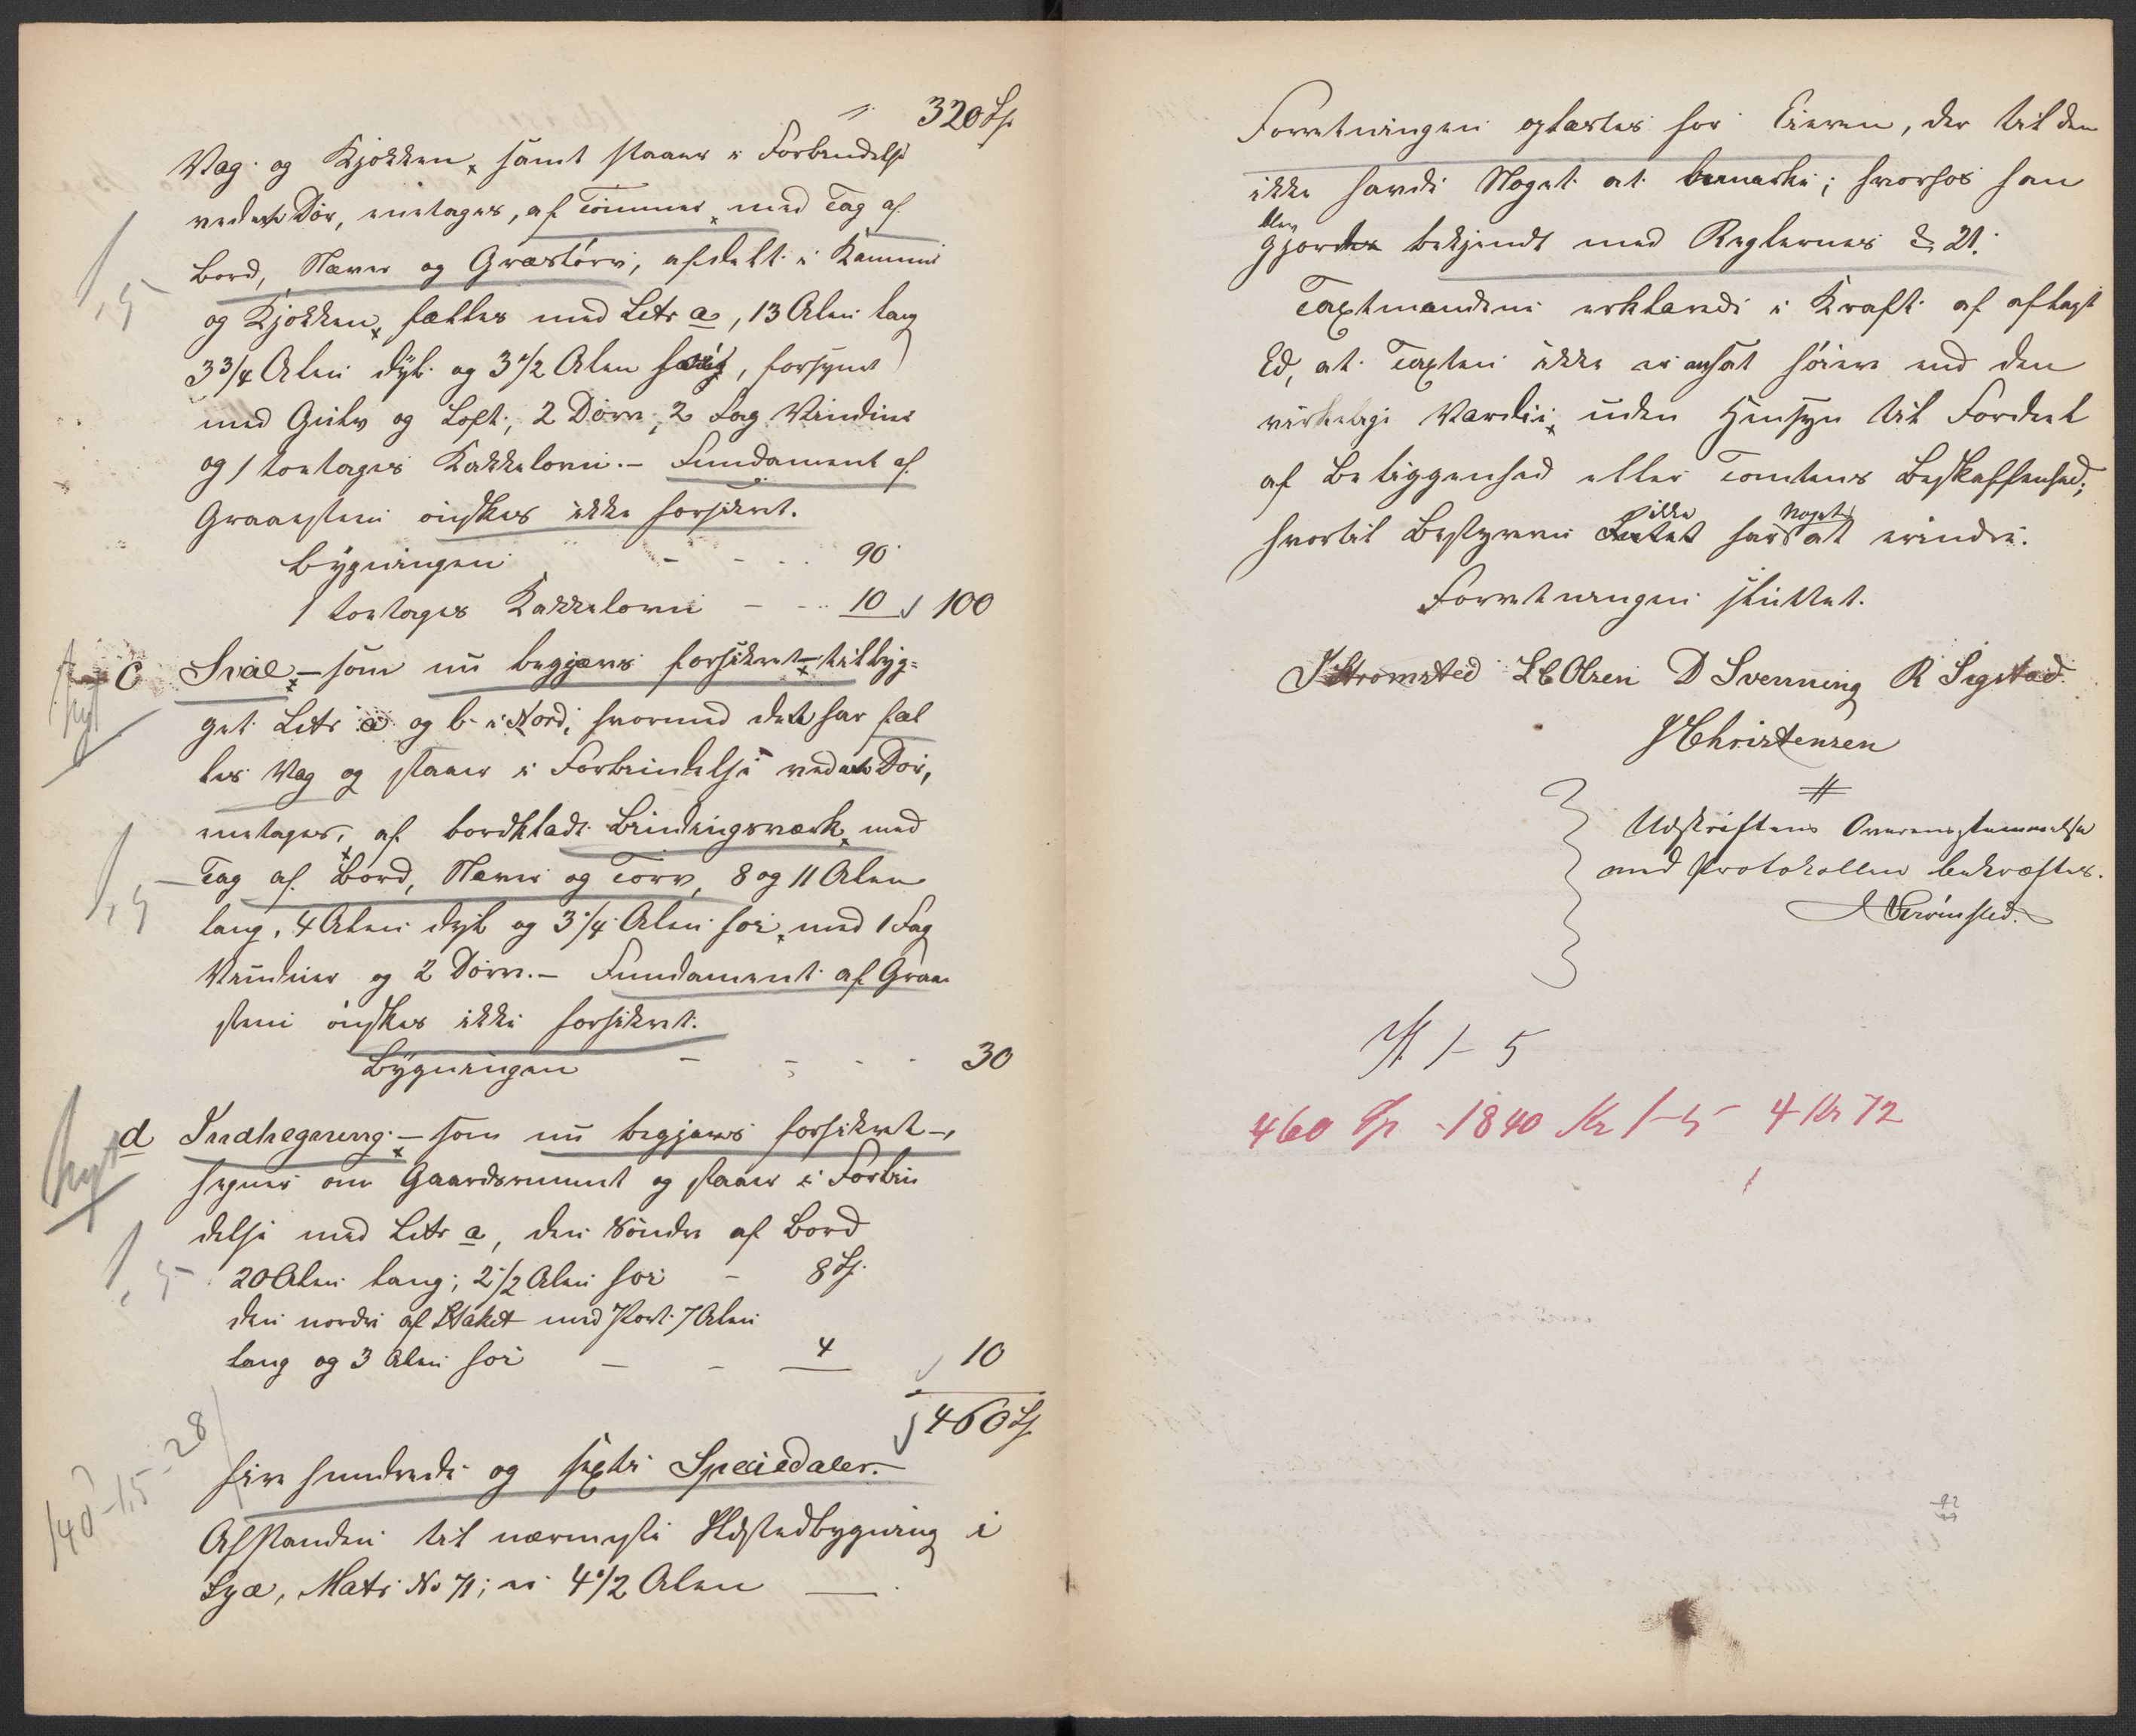 320 Sp
Væg og Kjøkken, samt staaer i Forbindelse
ved et Dør, enetages, af Tømmer, med Tag af
Bord, Næver og Græstørv, afdelt i Kammer
og Kjøkken, fælles med Litr a, 13 Alen lang
3 3/4 Alen dyb og 3 1/2 Alen høi, forsynet
med Gulv og Loft, 2 Døre, 2 Fag Vinduer
og 1 toetages Kakkelovn. - Fundament af
Graasten ønskes ikke forsikret.
Bygningen - - - 90
1 toetages Kakkelovn - - 10 100
1,5
nyt
c Sval, - som nu begjæres forsikret - tilbyg-
get Litr a og b i Nord, hvormed det har fæl
les Væg og staaer i Forbindelse ved et Dør,
enetages, af bordklædt Bindingsværk, med
Tag af Bord, Næver og Torv, 8 og 11 Alen
lang, 4 Alen dyb og 3 1/4 Alen høi, med 1 Fag
Vinduer og 2 Døre. - Fundament af Graa
sten ønskes ikke forsikret.
Bygningen - - - - 30
1,5
nyt
d Indhegning - som nu begjæres forsikret -,
hegner om Gaardsrummet og staaer i Forbin
delse med Litr a, den søndre af Bord
20 Alen lang, 2 1/2 Alen høi - 8 Sp.
den nordre af Stakit med Port 7 Alen
lang og 3 Alen høi - - 4 10
1,5
460 Sp
fire hundrede og sexti Speciedaler.
140 - 1,5 - 28
Afstanden til nærmeste Ildstedbygning i
Lyæ, Matr No 71, er 4 1/2 Alen -
Forretningen oplæstes for Eieren, der til den
ikke havde Noget at bemærke; hvorhos han
blev
gjordes bekjendt med Reglernes § 21.
Taxtmændene erklærede i Kraft af aflagt
Ed, at Taxten ikke er ansat høiere end den
virkelige Værdie, uden Hensyn til Fordeel
af Beliggenhed eller Tomtens Beskaffenhed;
ikke Noget
hvortil Bestyreren Intet har at erindre.
Forretningen sluttet.
J Strømsted L C Olsen D Svenning R Sigstad
J Christensen
#
Udskriftens Overensstemmelse
med Protokollen bekræftes.
J Strømsted.
H 1-5
460 Sp - 1840 Kr 1-5 4 Kr 72